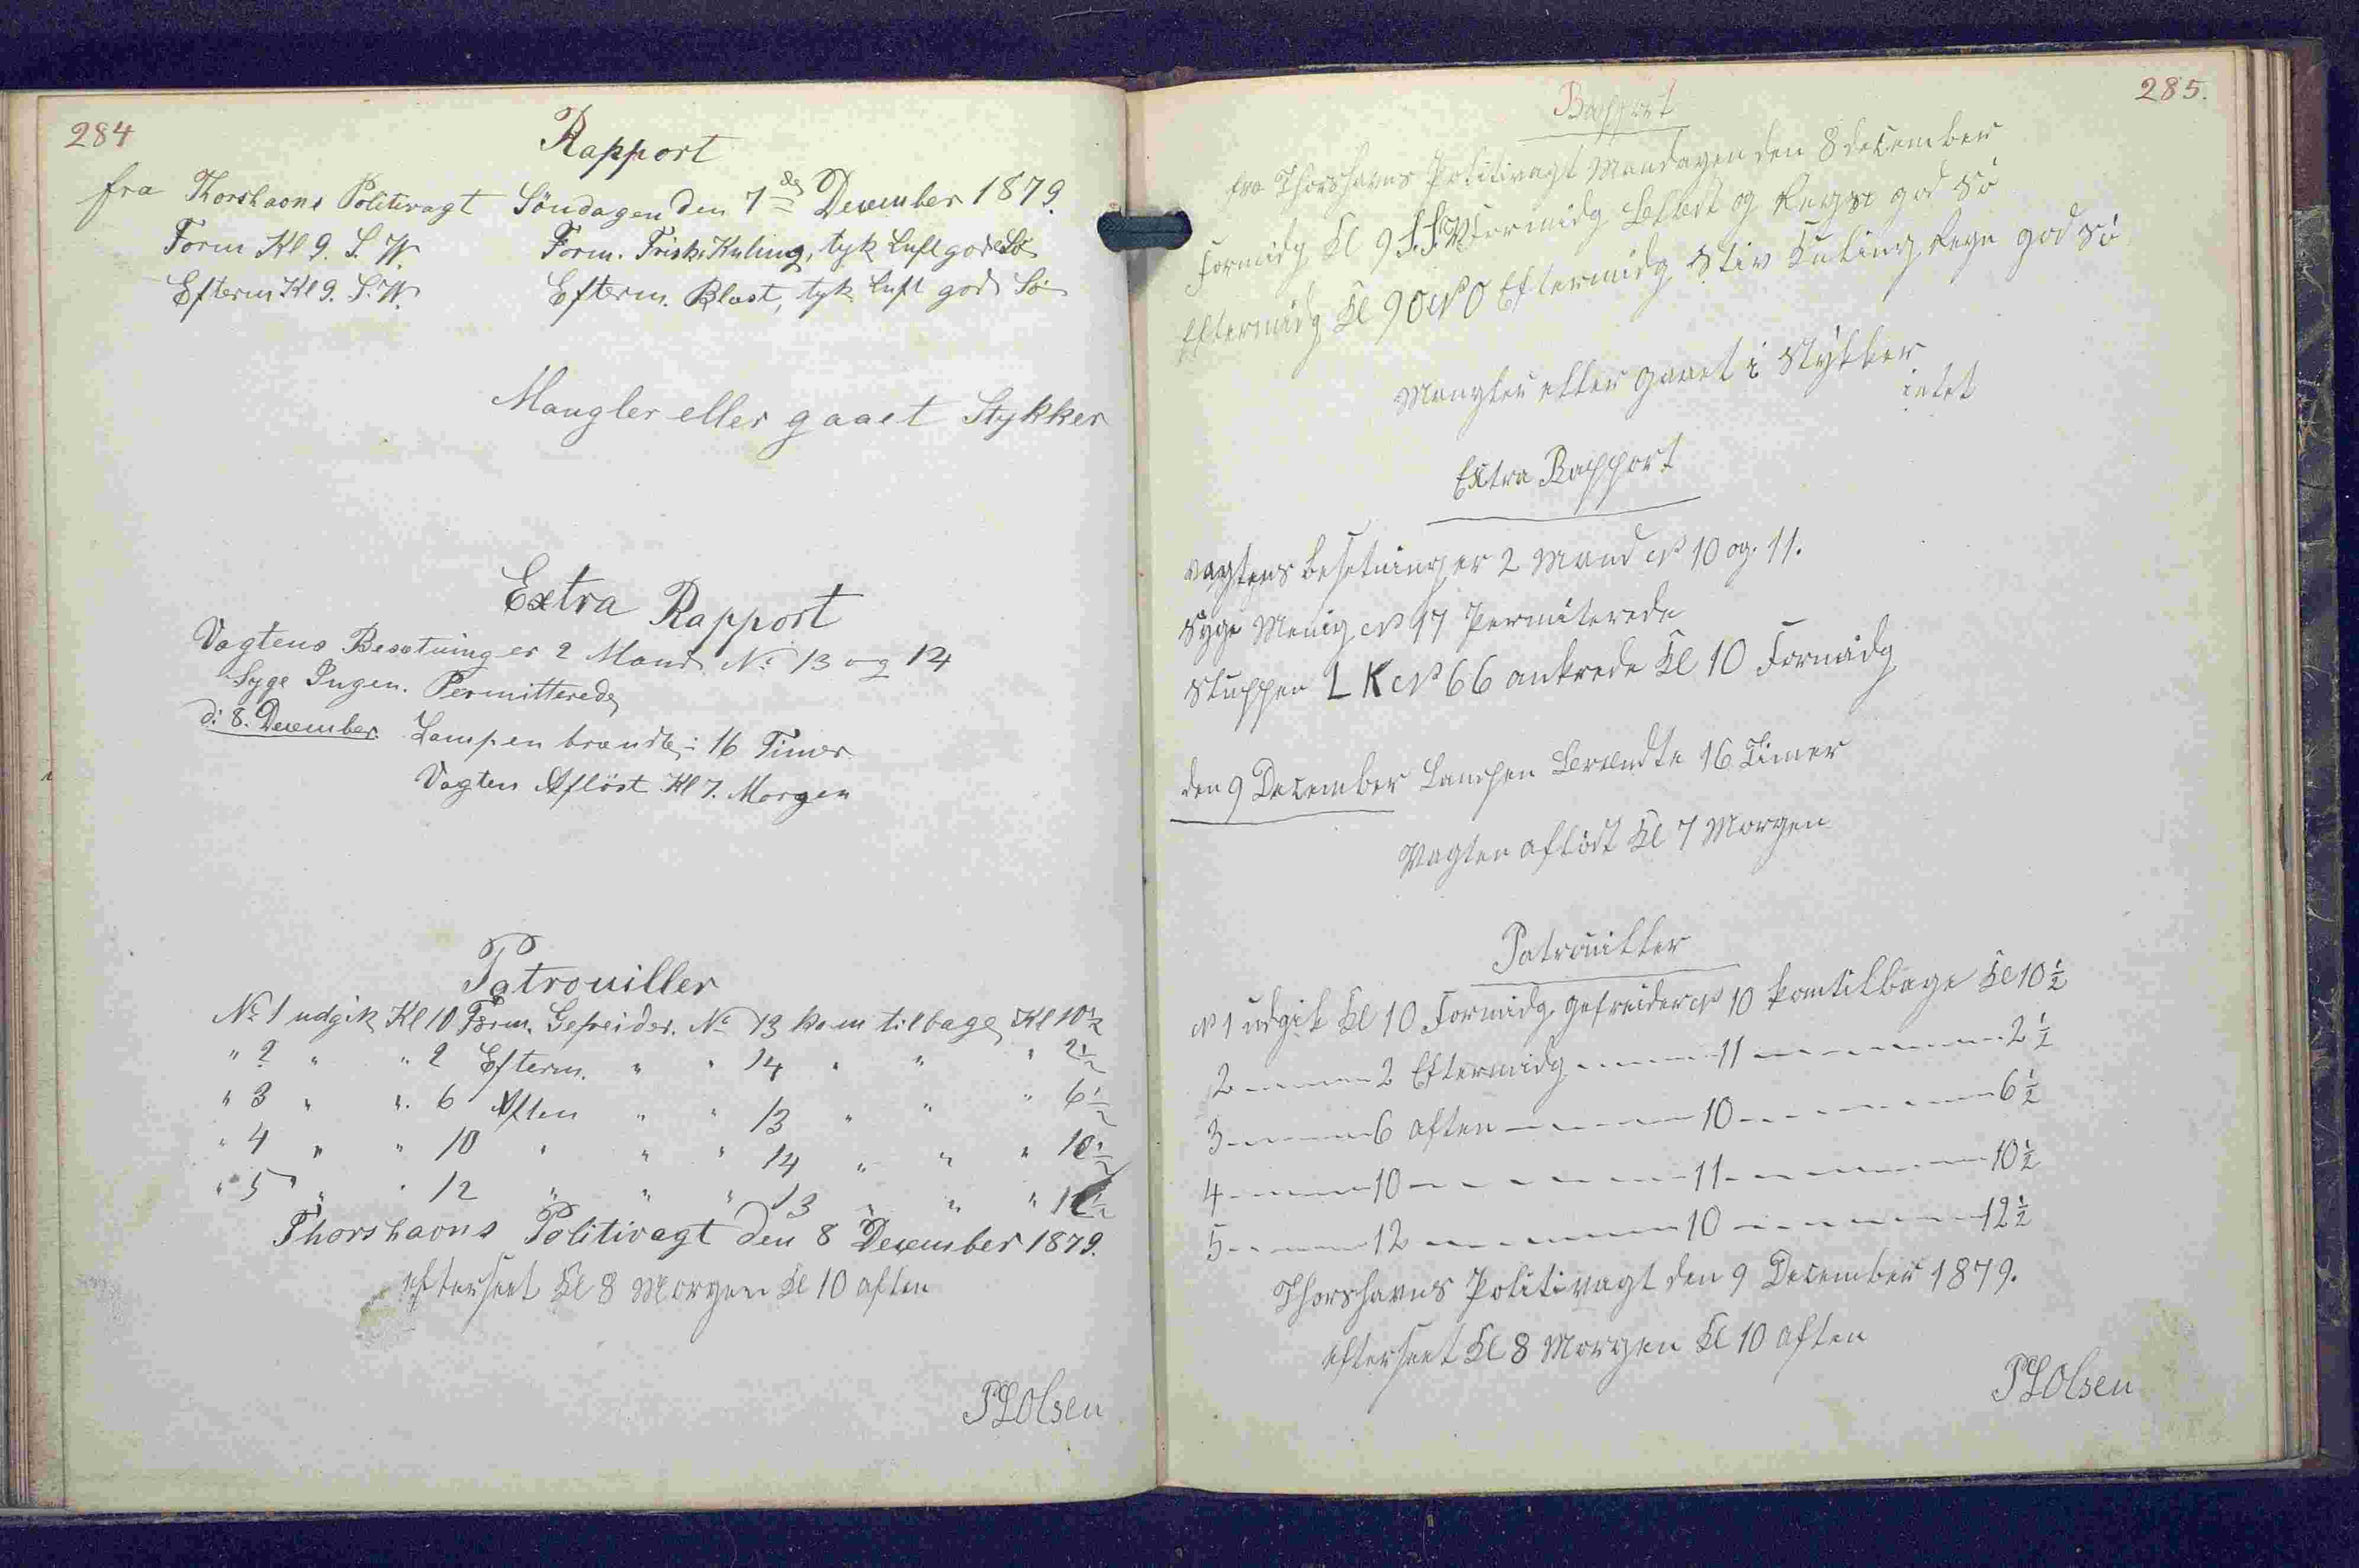 284
Rapport
fra Thorshavns Politivagt Søndagen den 7de December 1879.
Form Kl 9. S. W. Form. Frisk Kuling, tyk Luft god Sø
Efterm Kl 9. S. W. Efterm. Blæst, tyk Luft god Sø
Mangler eller gaaet Stykker
Extra Rapport
Vagtens Besætning er 2 Mand No 13 og 14
Syge Ingen. Permitterede
d: 8. December. Lampen brændte: 16 Timer
Vagten Afløst Kl 7. Morgen
Patrouiller
No 1 udgik Kl 10 Form. Gefreider. No 13 kom tilbage Kl 10½
" 2 " " 2 Efterm. " " 14 " " " 2½
" 3 " " 6 Aften " " 13 " " " 6½
" 4 " " 10 " " " 14 " " " 10½
" 5 " " 12 " " " 13 " " "
Thorshavns Politivagt den 8 December 1879.
Efterseet Kl 8 Morgen Kl 10 Aften
PLOlsen
285.
Rapport
fra Thorshavns Politivagt Mandagen den 8 december
Formidg Kl 9 S.S.W Formidg Blæst og Regn god Sø
Eftermidg Kl 9 O N O Eftermidg Stiv Kuling Regn god Sø
Mangler eller gaaet i Stykker
intet
Extra Rapport
Vagtens Besetning er 2 Mand No 10 og. 11.
Syge Menig No 17 Permiterede
Sluppen L K No 66 ankrede Kl 10 Formidg
den 9 December Lampen Brændte 16 Timer
Vagten afløst Kl 7 Morgen
Patrouiller
No 1 udgik Kl 10 Formidg. gefreider No 10 kom tilbage Kl 10½
2 - - - - 2 Eftermidg - - - - 11 - - - - - - 2½
3 - - - - 6 aften - - - - 10 - - - - - - 6½
4 - - - - 10 - - - - - - 11 - - - - - - 10½
5 - - - - 12 - - - - - - 10 - - - - - - 12½
Thorshavns Politivagt den 9 December 1879.
Efterseet Kl 8 Morgen Kl 10 aften
PLOlsen